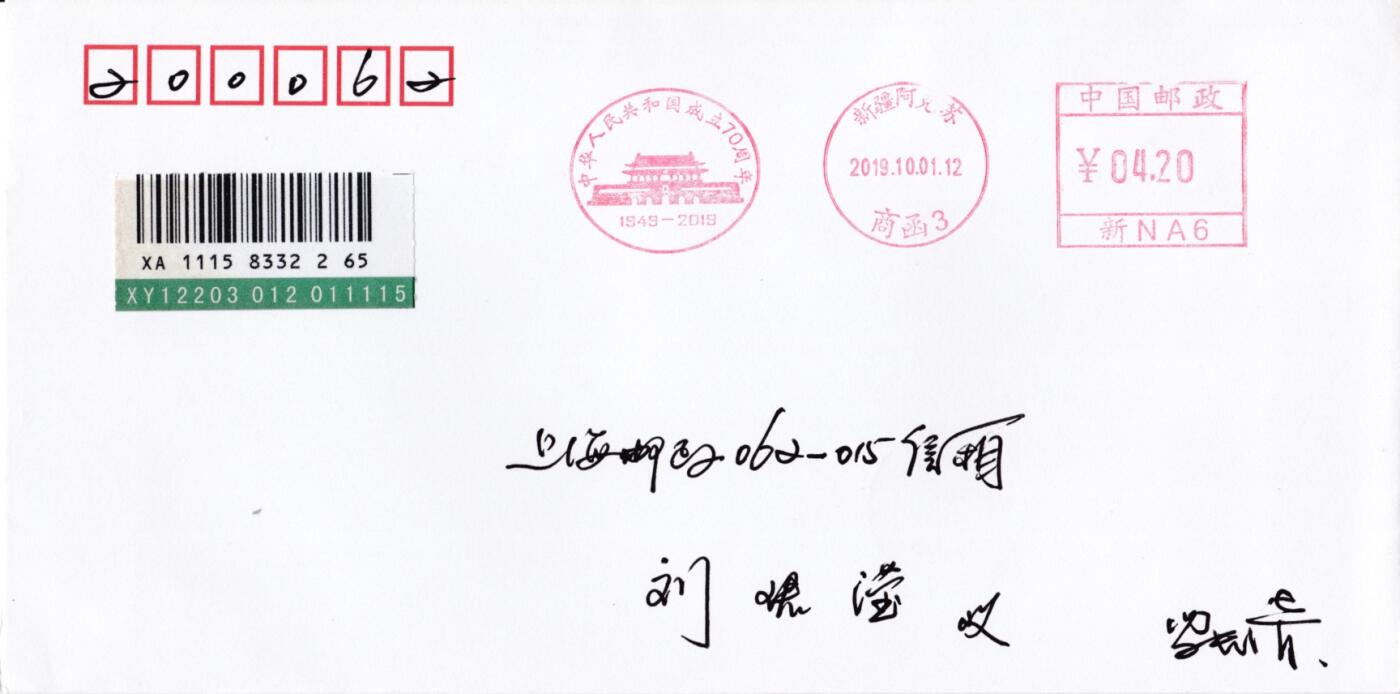 200062
中华人民共和国成立70周年
1949-2019
新疆阿克苏
2019.10.01.12
商函3
中国邮政
¥04.20
新NA6
XA 1115 8332 2 65
XY12203 012 011115
上海邮政062-015信箱
刘 滢 收